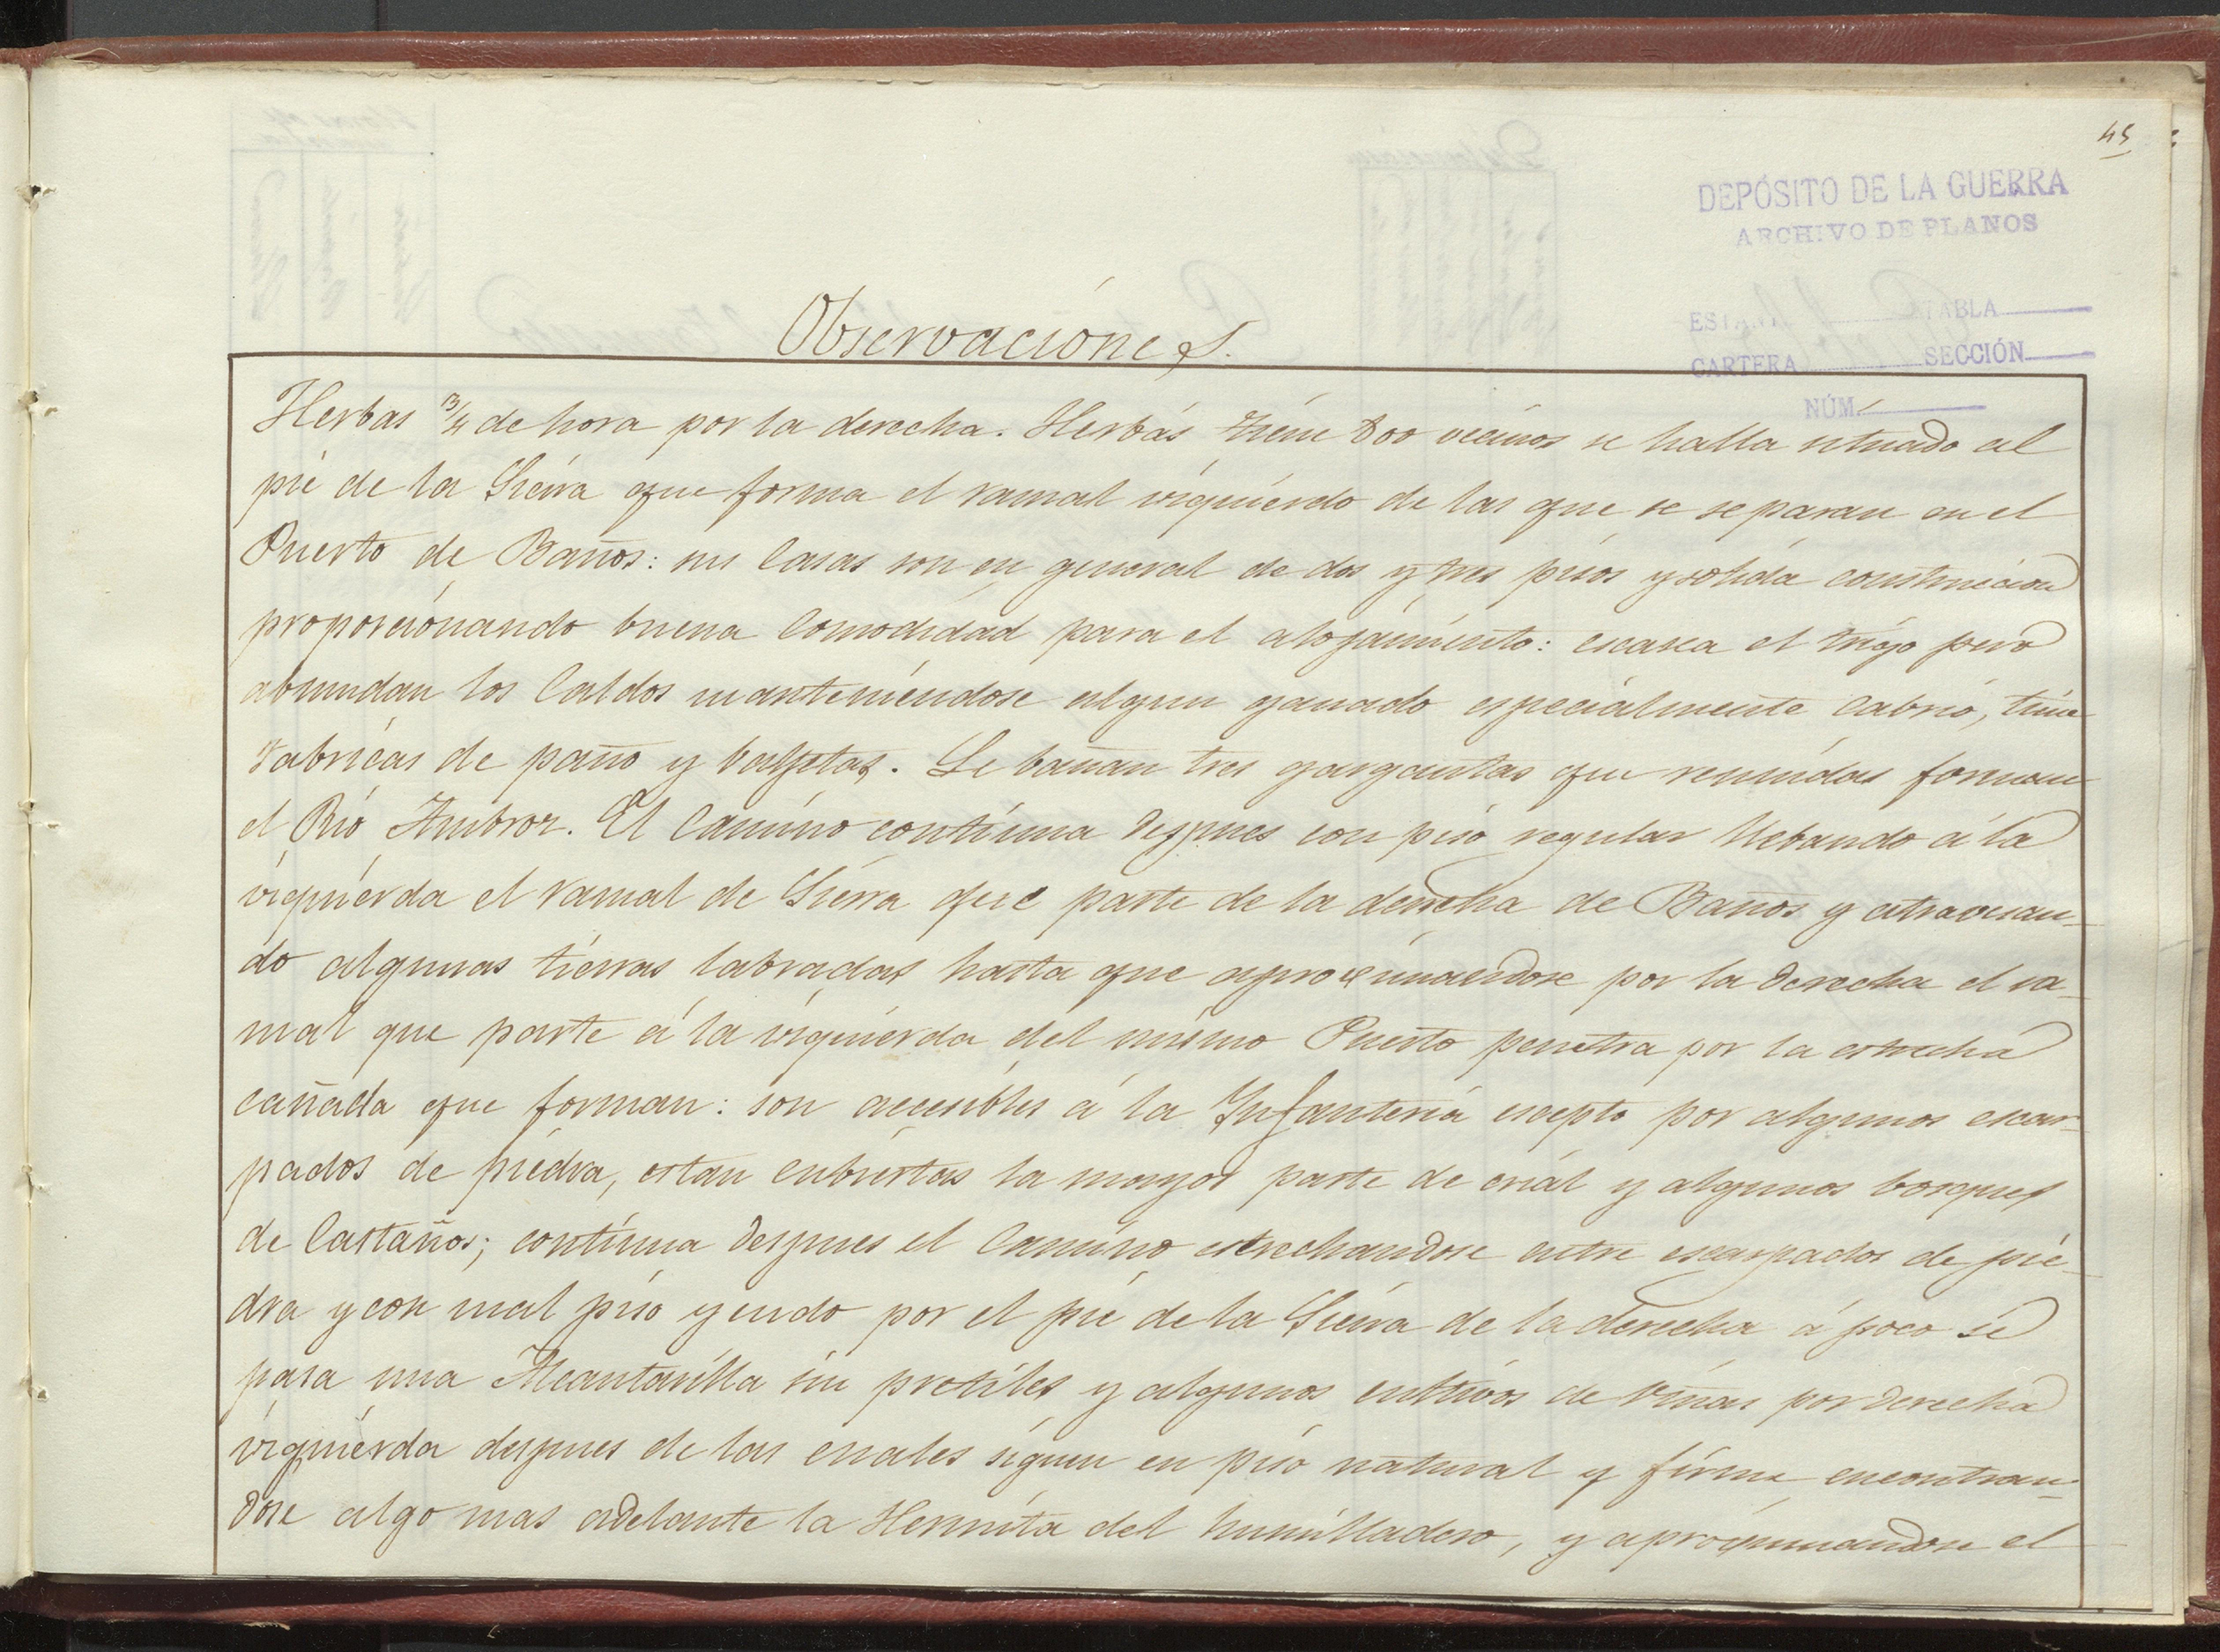 45
DEPÓSITO DE LA GUERRA
ARCHIVO DE PLANOS
ESTANT TABLA
CARTERA SECCIÓN
NÚM.
Observaciónes.
Herbas 3/4 de hora por la derecha. Herbás tiene 800 vecinos se halla situado al
pie de la Sierra que forma el ramal izquierdo de las que se separan en el
Puerto de Baños: sus Casas son en general de dos y tres pisos y solida construccion
proporcionando buena Comodidad para el alojamiento: escasea el trigo pero
abundan los Caldos manteniendose algun ganado especialmente Cabrio, tiene
Fabricas de paño y balletas. Le bañan tres gargantas que reunidas forman
el Rio Ambroz. El Camino continua despues con piso regular llebando á la
izquierda el ramal de Sierra que parte de la derecha de Baños y atravesan-
do algunas tierras labradas hasta que aprocsimandose por la derecha el ra-
mal que parte á la izquierda del mismo Puerto penetra por la estrecha
cañada que forman: son accesibles á la Infanteria escepto por algunos escar-
pados de piedra, estan cubiertas la mayor parte de erial y algunos bosques
de Castaños; continua despues el Camino estrechandose entre escarpados de pie-
dra y con mal piso yendo por el pie de la Sierra de la derecha á poco se
pasa una Alcantarilla sin pretiles y algunos cultivos de Viñas por derecha
izquierda despues de las cuales siguen en piso natural y firme encontran-
dose algo mas adelante la Hermita del humilladero, y aprocsimandose el